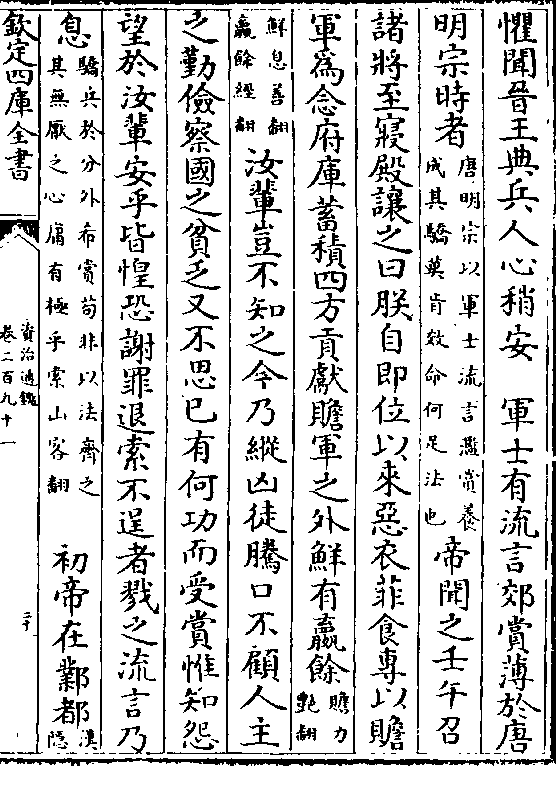 懼聞晉王典兵人心稍安　軍士有流言郊賞薄於唐
明宗時者唐明宗以軍士流言濫賞養成其驕莫肯效命何足法也帝聞之壬午召
諸將至寢殿讓之曰朕自即位以來惡衣菲食專以贍
軍為念府庫蓄積四方貢獻贍軍之外鮮有贏餘贍力艷翻
鮮息善翻贏餘經翻汝輩豈不知之今乃縱凶徒騰口不顧人主
之勤儉察國之貧乏又不思已有何功而受賞惟知怨
望於汝輩安乎皆惶恐謝罪退索不逞者戮之流言乃
息驕兵於分外希賞苟非以法齊之其無厭之心庸有極乎索山客翻　初帝在鄴都漢隱
欽定四庫全書
資治通鑑
卷二百九十一
二十